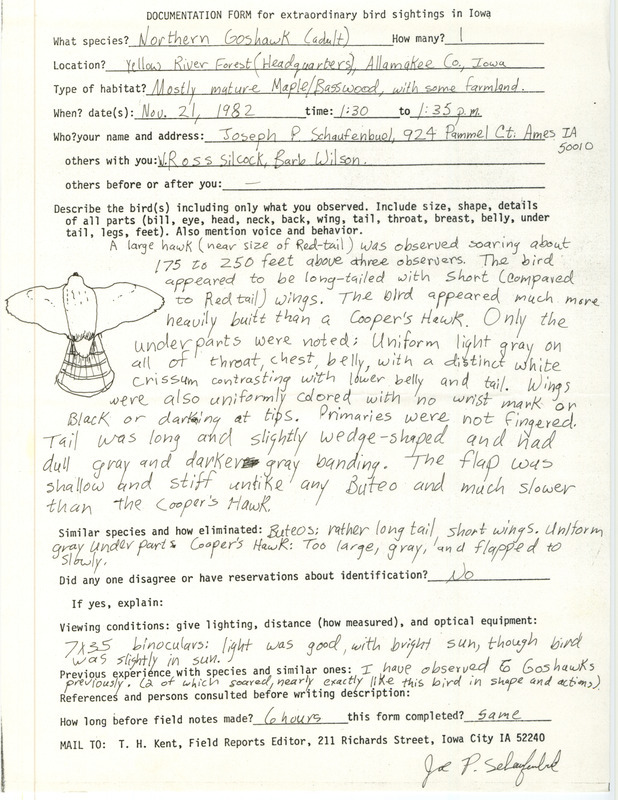 DOCUMENTATION FORM for extraordinary bird sightings in Iowa
What species? Northern Goshawk (adult) How many? 1
Location? Yellow River Forest (Headquarters), Allamakee Co., Iowa
Type of habitat? Mostly mature Maple/Basswood, with some farmland.
When? date(s): Nov. 21, 1982 time: 1:30 to 1:35 p.m.
Who? your name and address: Joseph P. Schaufenbuel, 924 Pammel Ct. Ames IA
50010
others with you: W. Ross Silcock, Barb Wilson.
others before or after you: —
Describe the bird(s) including only what you observed. Include size, shape, details
of all parts (bill, eye, head, neck, back, wing, tail, throat, breast, belly, under
tail, legs, feet). Also mention voice and behavior.
A large hawk (near size of Red-tail) was observed soaring about
175 to 250 feet above three observers. The bird
appeared to be long-tailed with short (compared
to Red tail) wings. The bird appeared much more
heavily built than a Cooper's Hawk. Only the
underparts were noted: Uniform light gray on
all of throat, chest, belly, with a distinct white
crissum contrasting with lower belly and tail. Wings
were also uniformly colored with no wrist mark or
Black or darking at tips. Primaries were not fingered.
Tail was long and slightly wedge-shaped and had
dull gray and darker gray banding. The flap was
shallow and stiff unlike any Buteo and much slower
than the Cooper's Hawk.
Similar species and how eliminated: Buteos: rather long tail, short wings. Uniform
gray underparts Cooper's Hawk: Too large, gray, and flapped to
slowly.
Did any one disagree or have reservations about identification? No
If yes, explain:
Viewing conditions: give lighting, distance (how measured), and optical equipment:
7x35 binoculars: light was good, with bright sun, though bird
was slightly in sun.
Previous experience with species and similar ones: I have observed 5 Goshawks
previously. (2 of which soared, nearly exactly like this bird in shape and actions)
References and persons consulted before writing description:
How long before field notes made? 6 hours this form completed? same
MAIL TO: T. H. Kent, Field Reports Editor, 211 Richards Street, Iowa City IA 52240
Joe P. Schaufenbuel